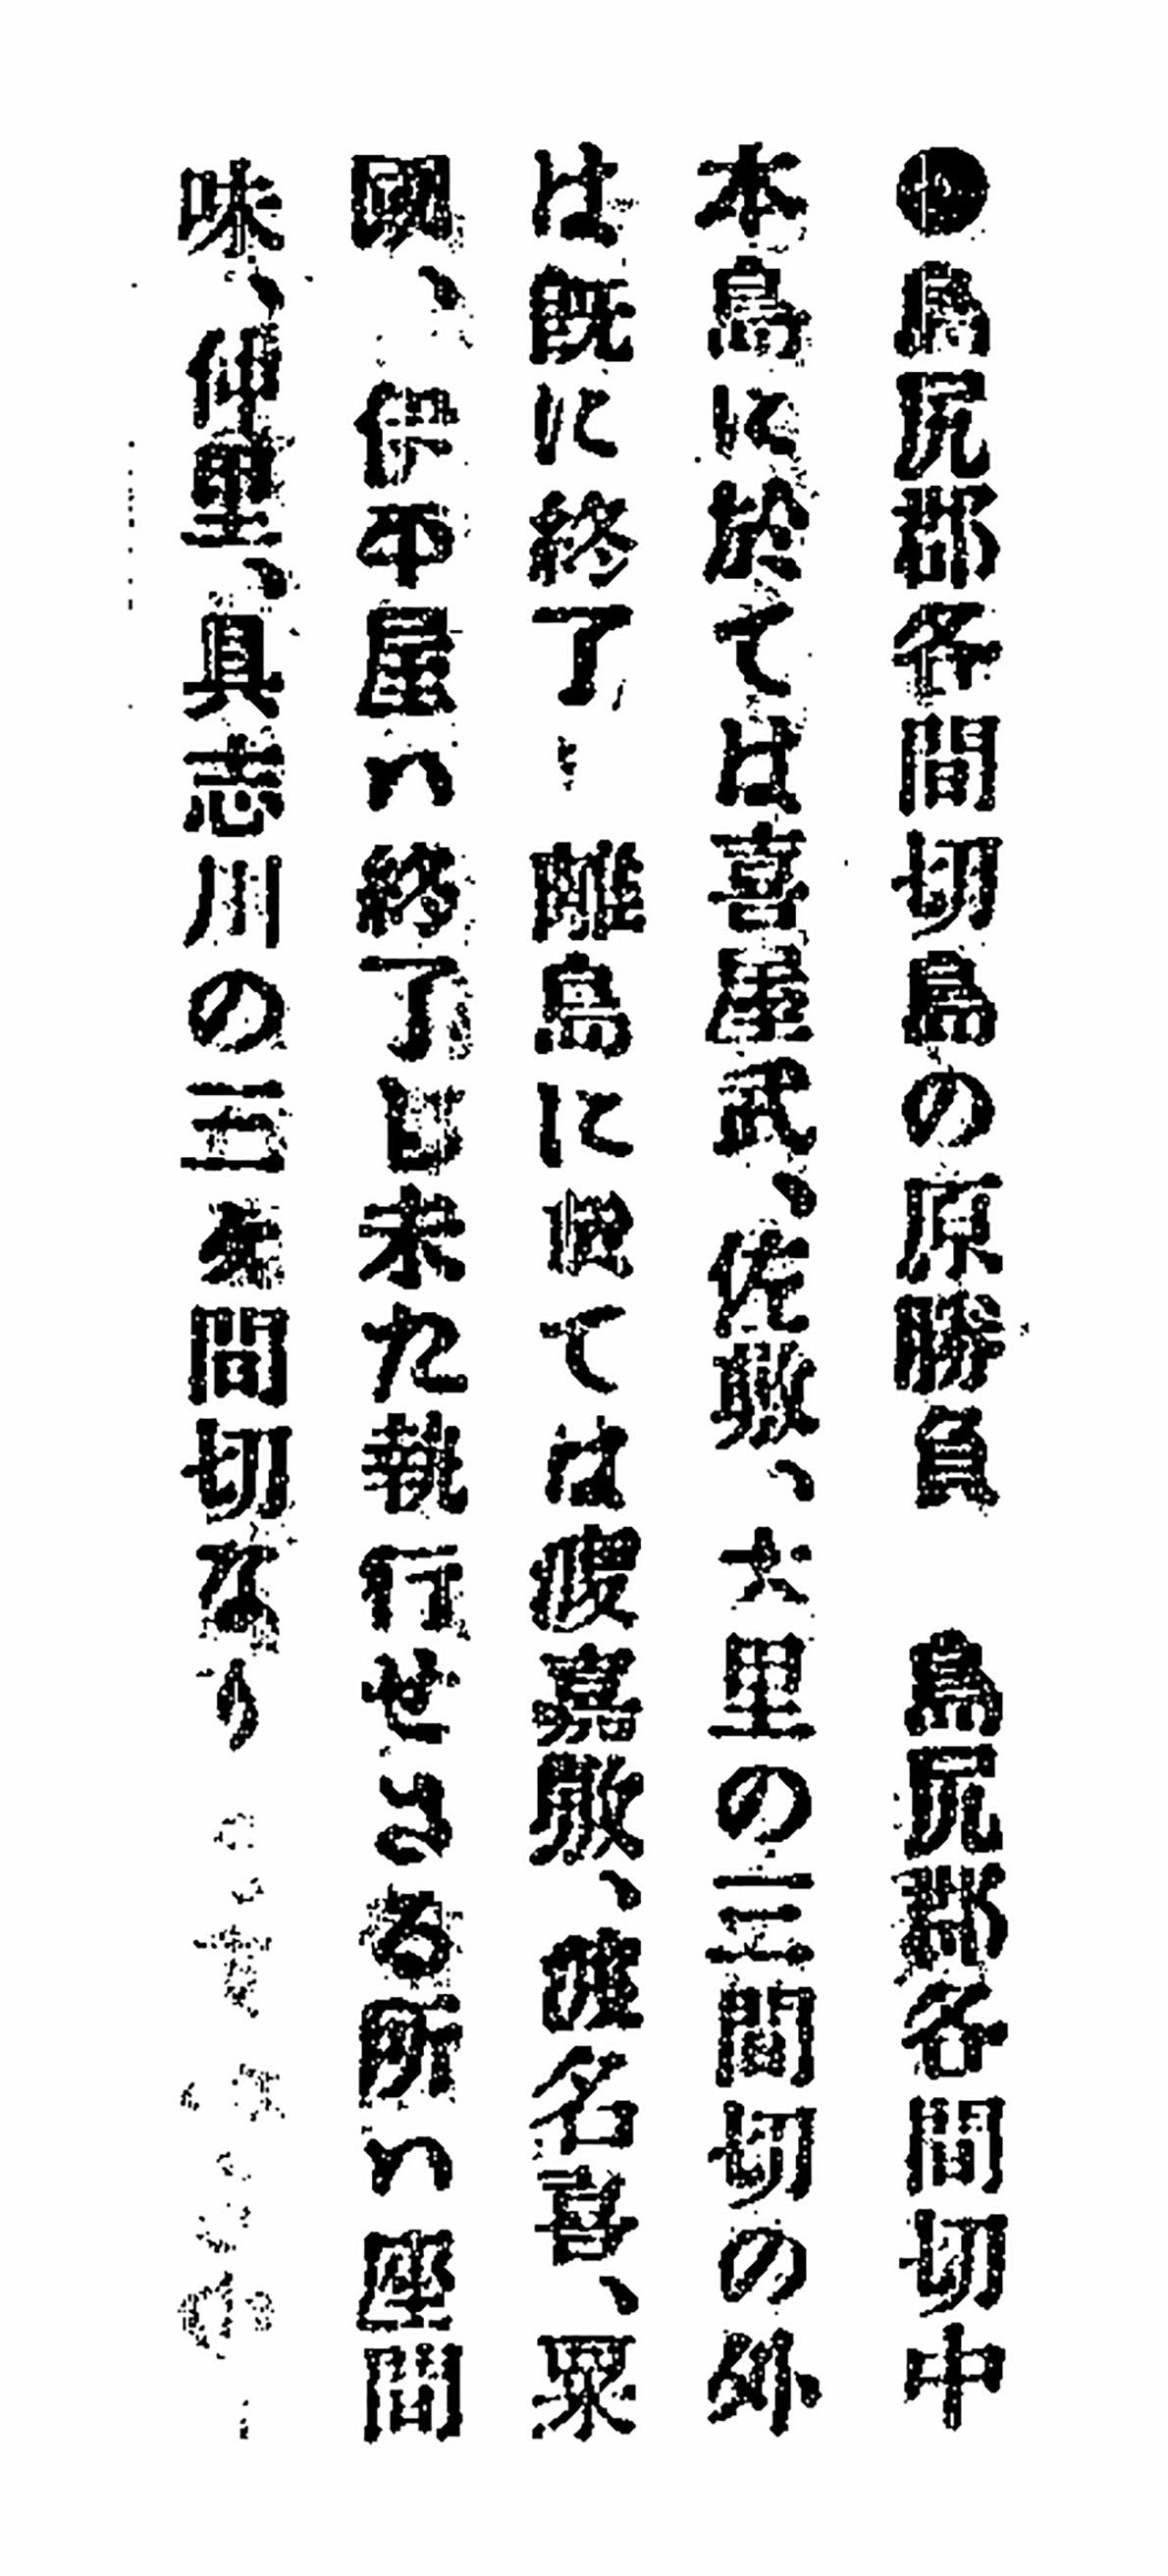 ●島尻郡各間切島の原勝負　島尻郡各間切中
本島に於ては喜屋武、佐敷、大里の三間切の外
は既に終了し離島に於ては渡嘉敷、渡名喜、粟
國、伊平屋ハ終了し未た執行せさる所ハ座間
味、仲里、具志川の三ケ間切なり